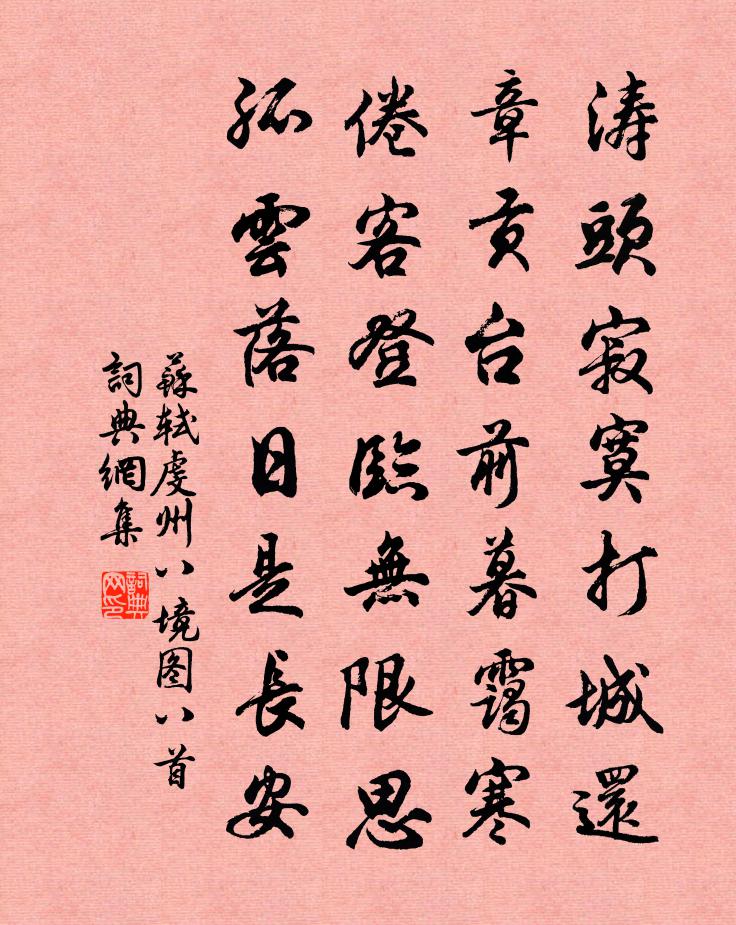 涛頭寂寞打城還
章貢台前暮靄寒
倦客登臨無限思
孤雲落日是長安
蘇軾虔州八境图八首
詞典網集
詞典网印